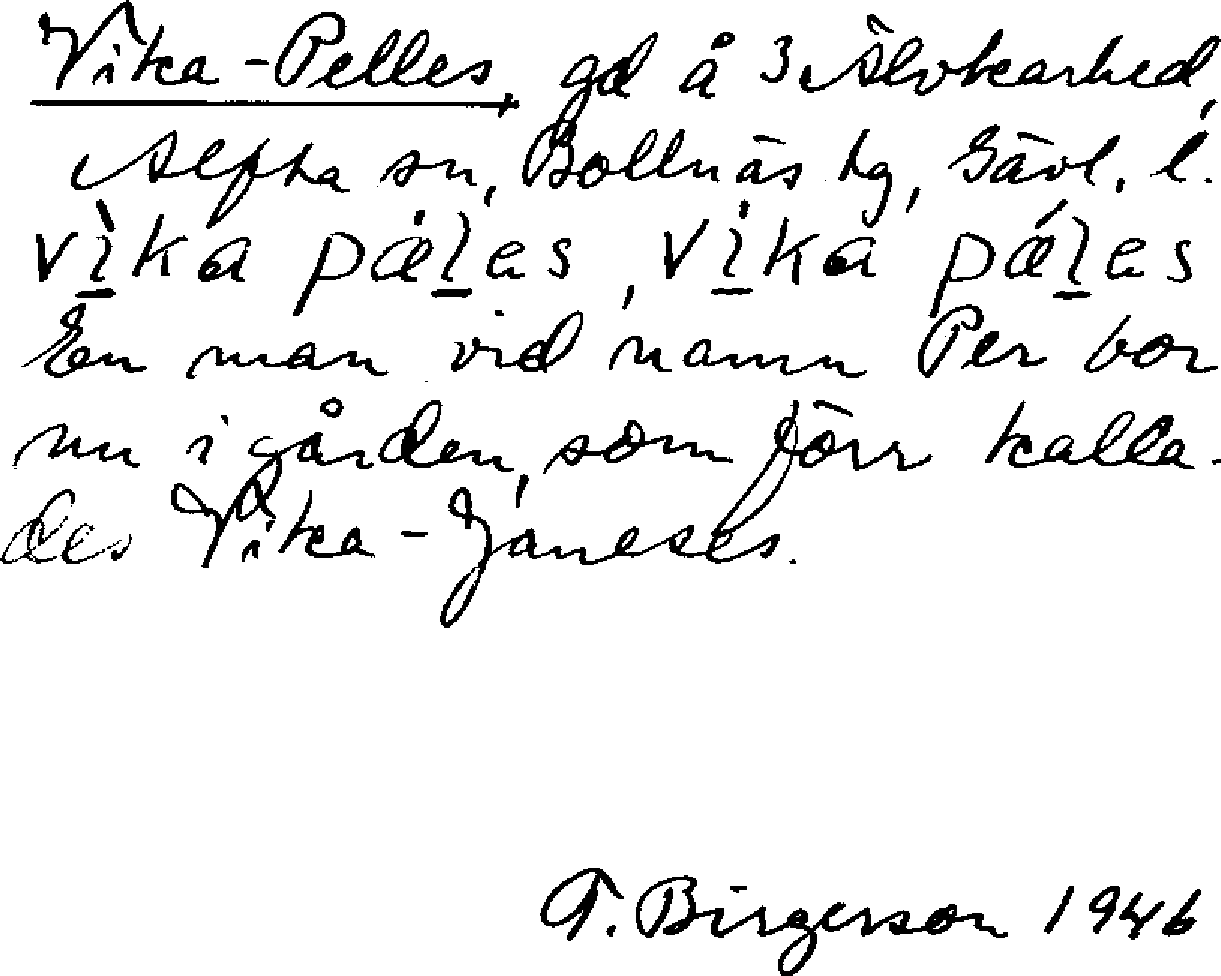 Vika-Pelles, gd å 3 Älvkarhed,
Alfta sn, Bollnäs tg, Gävl. l.
vi̱ka pæl̠es, vi̱ka pæl̠es
En man vid namn Per bor
nu i gården, som förr kalla-
des Vika-Janeses.
T. Birgerson 1946